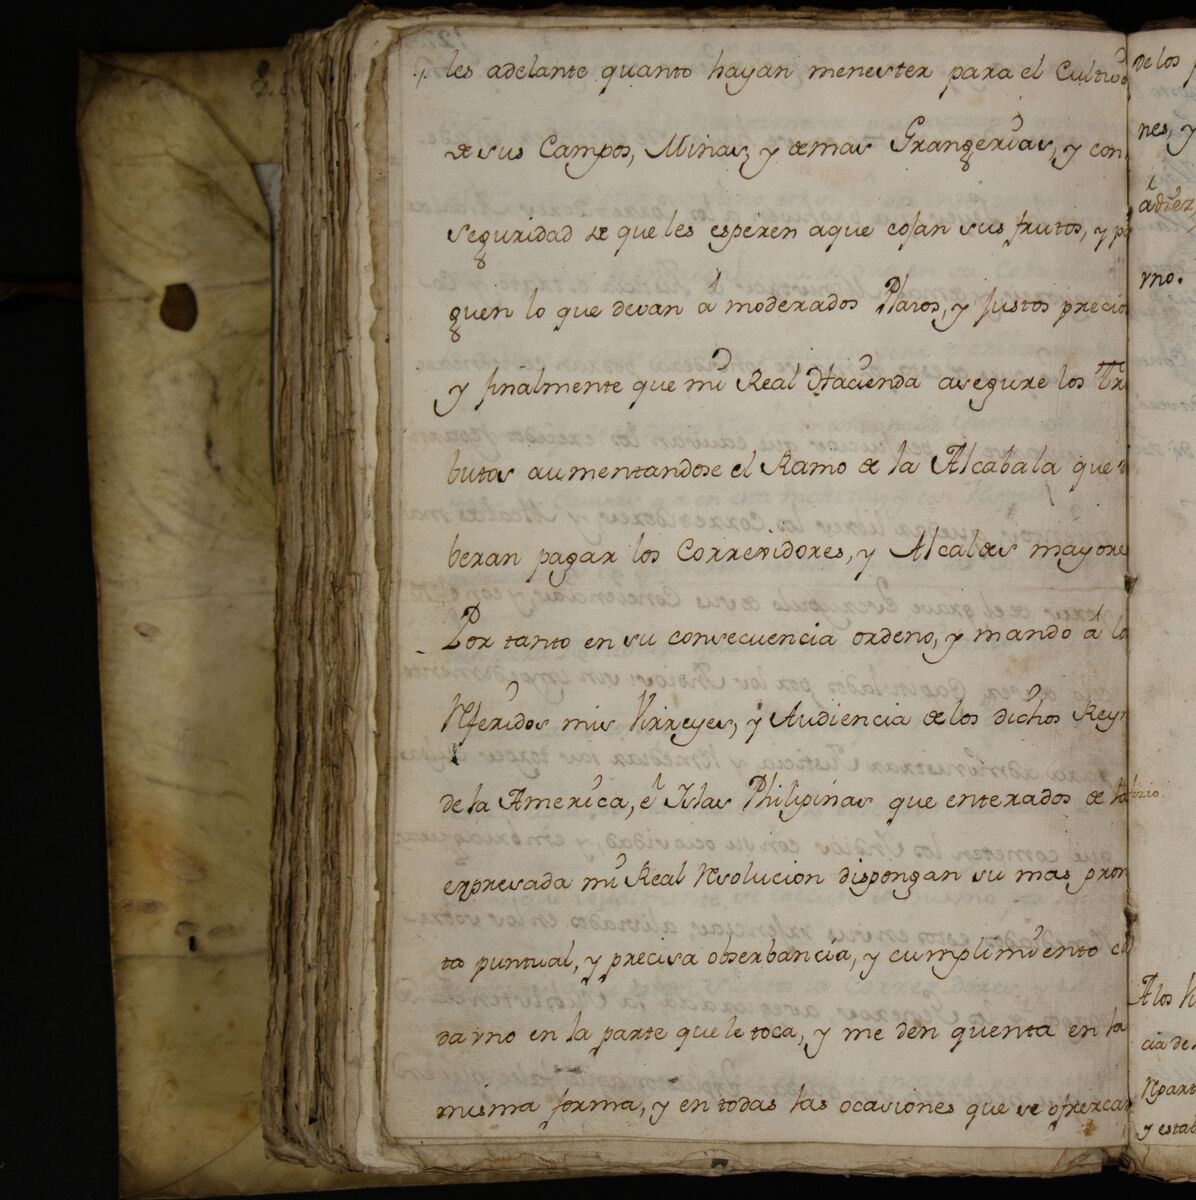 les adelante quanto hayan menester para el Cultivo
de sus Campos, Minas, y demas Grangerias, y con
seguridad de que les esperen aque cojan sus frutos, y pa
guen lo que devan á moderados Plazos, y justos precios
y finalmente que mi Real Hacienda asegure los Tri
butos aumentandose el Ramo de la Alcabala que de
beran pagar los Corregidores, y Alcaldes mayores
Por tanto en su consecuencia ordeno, y mando á los
Referidos mis Virreyes, y Audiencia de los dichos Reyn
de la America, è Yslas Philipinas que enterados de la
expresada mi Real Resolucion dispongan su mas pron
ta puntual, y precisa obserbancia, y cumplimiento ca
da vno en la parte que le toca, y me den quenta en la
misma forma, y en todas las ocasiones que se ofrezcan
de los
nes, y
adiez
vno.
A los
cia de
Repart
y estab